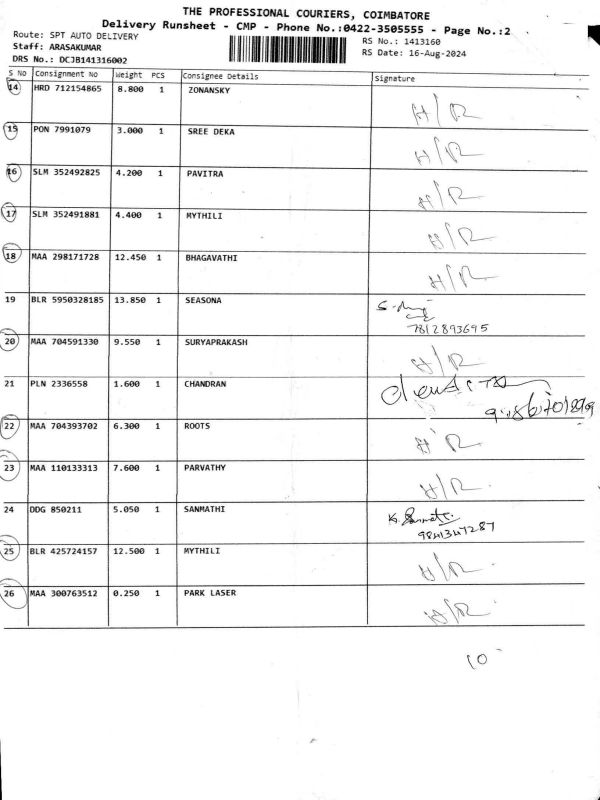 THE PROFESSIONAL COURIERS, COIMBATORE
Delivery Runsheet - CMP - Phone No.:0422-3505555 - Page No.:2
Route: SPT AUTO DELIVERY RS No.: 1413160
Staff: ARASAKUMAR RS Date: 16-Aug-2024
DRS No.: DCJB141316002
S No Consignment No Weight PCS Consignee Details Signature
14 HRD 712154865 8.800 1 ZONANSKY H/R
15 PON 7991079 3.000 1 SREE DEKA H/R
16 SLM 352492825 4.200 1 PAVITRA H/R
17 SLM 352491881 4.400 1 MYTHILI H/R
18 MAA 298171728 12.450 1 BHAGAVATHI H/R
19 BLR 5950328185 13.850 1 SEASONA
7812893695
20 MAA 704591330 9.550 1 SURYAPRAKASH H/R
21 PLN 2336558 1.600 1 CHANDRAN
22 MAA 704393702 6.300 1 ROOTS H/R
23 MAA 110133313 7.600 1 PARVATHY H/R
24 DDG 850211 5.050 1 SANMATHI
9841347287
25 BLR 425724157 12.500 1 MYTHILI H/R
26 MAA 300763512 0.250 1 PARK LASER H/R
10